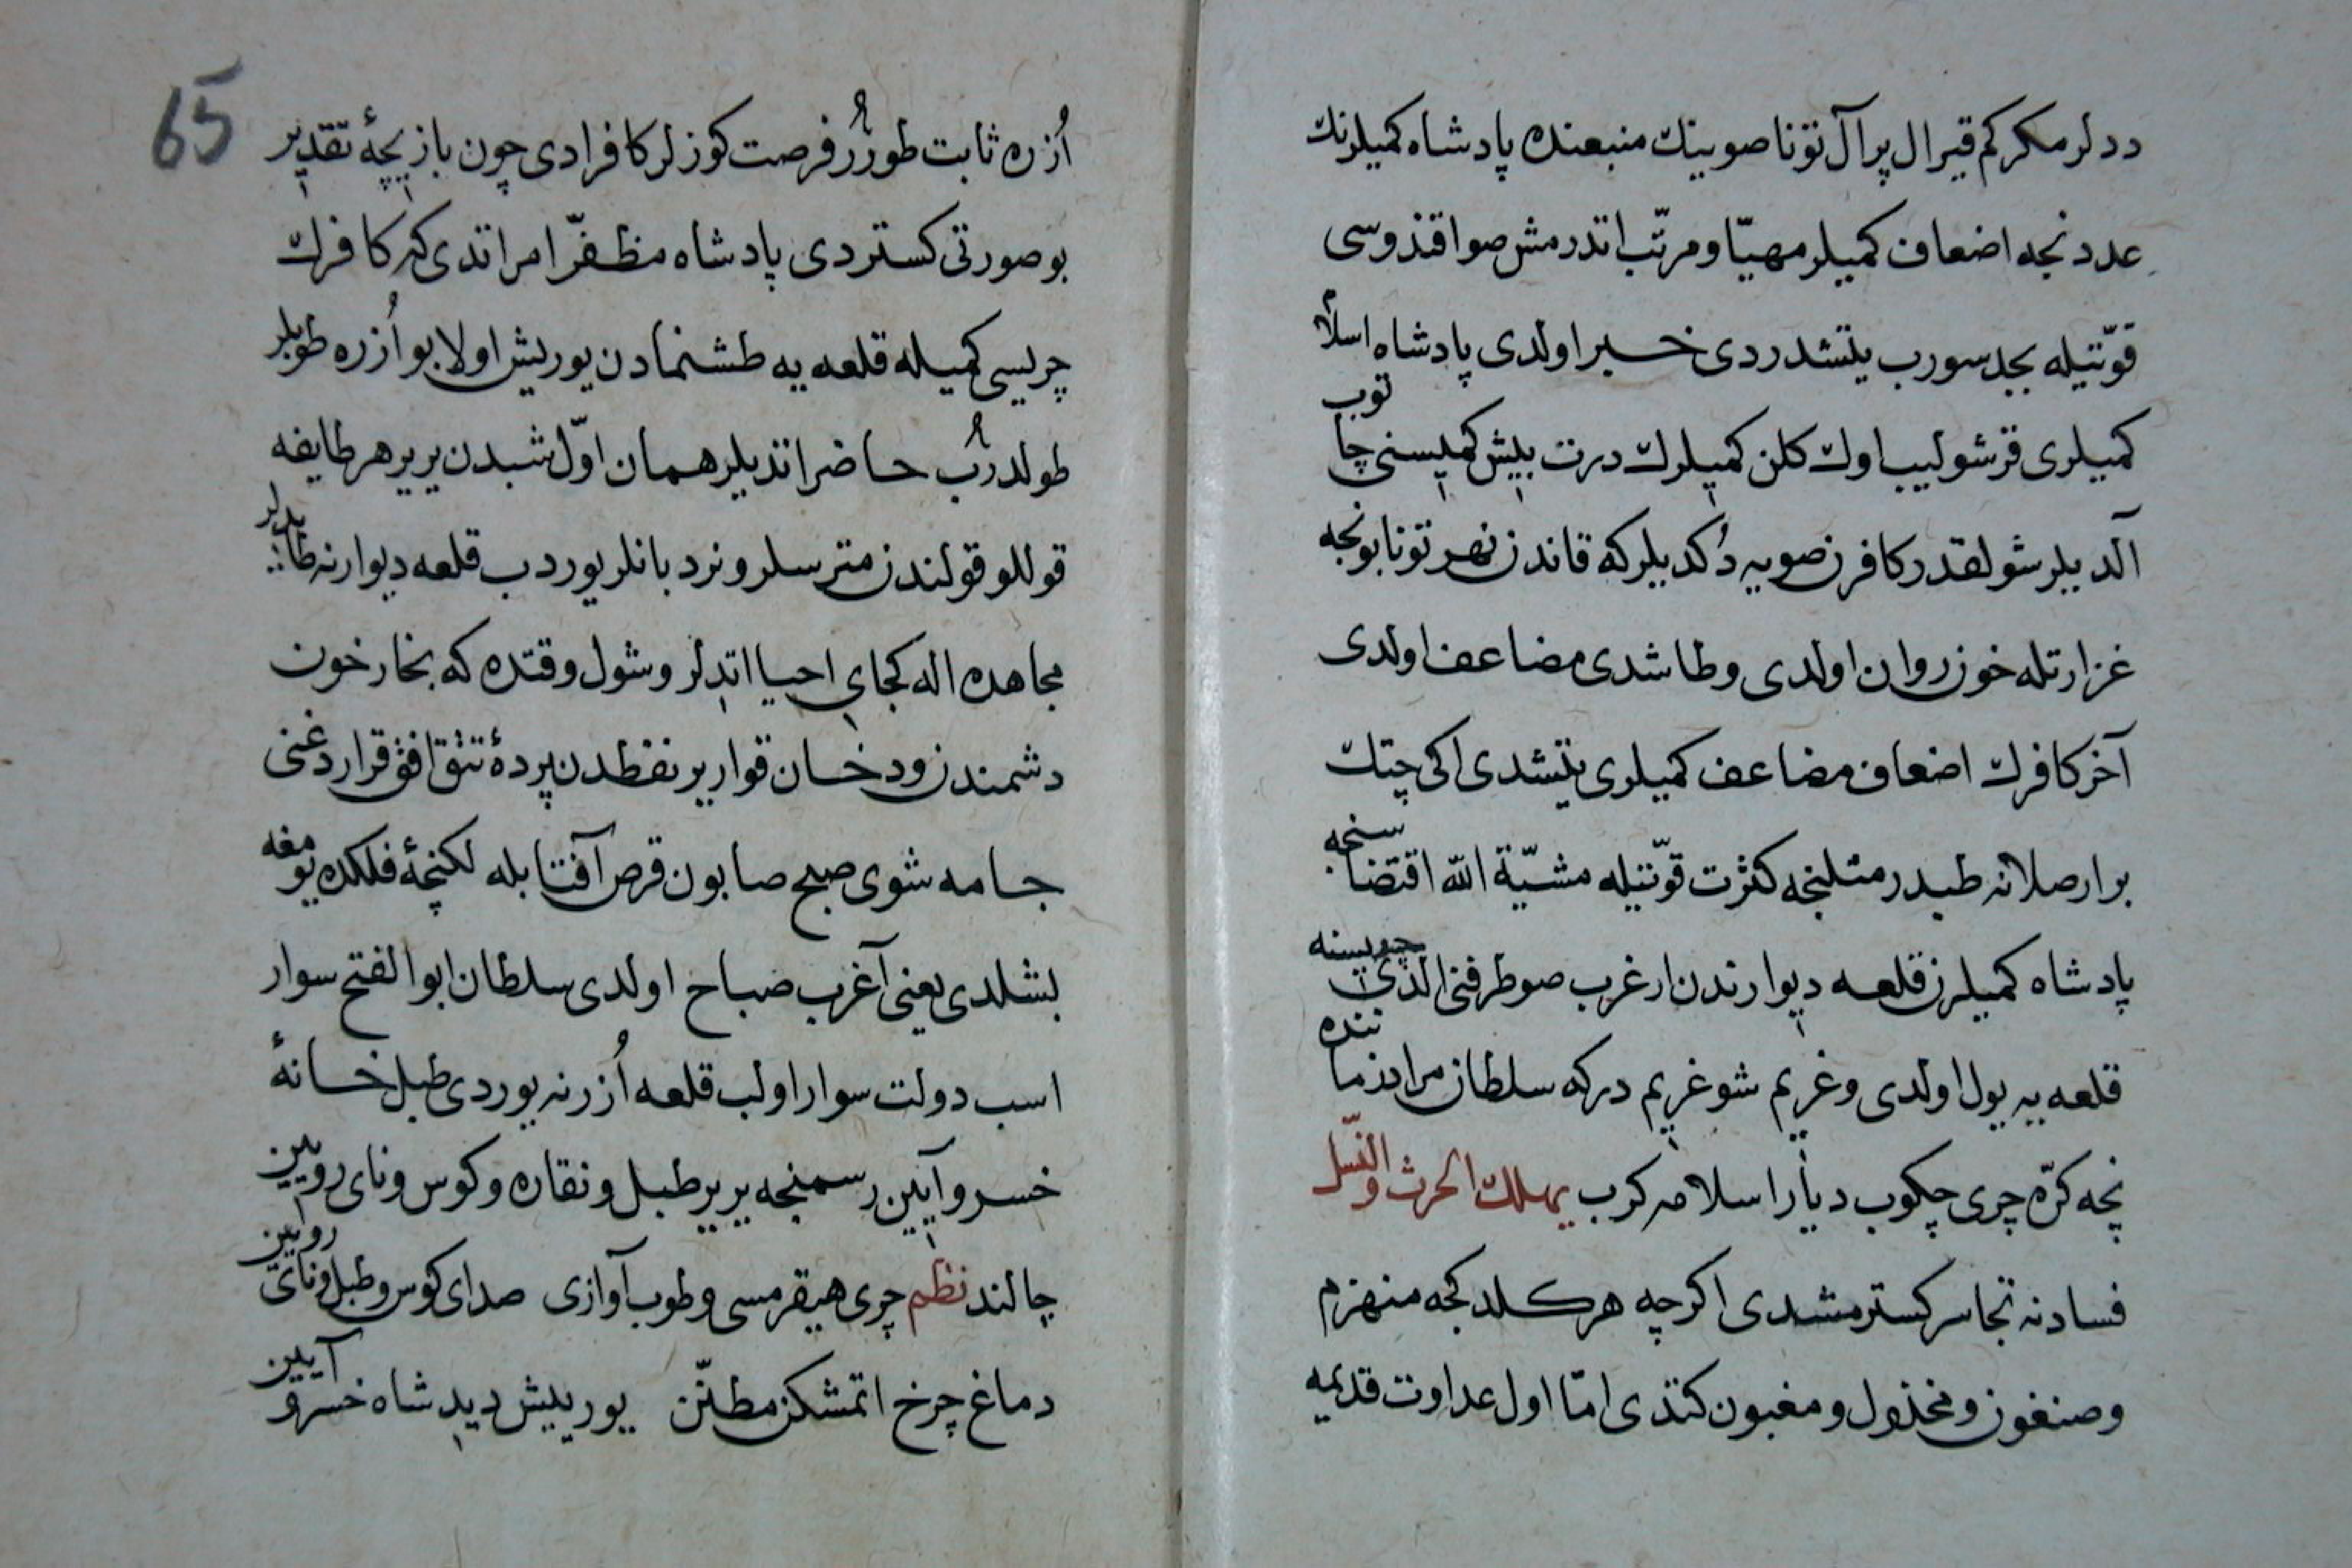 ددلر مكركم قيرال پرآل تونا صوينك منبعنده پادشاه كميلرنك
عددنجه اضعاف كميلر مهيّا و مرتّب اتدرمش صوا قندوسى
قوّتيله بجد سورب يتشدردى خبر اولدى پادشاه اسلام
كميلرى قرشولييب اوك كلن كميلرك درت بيش كميسنى چاتوب
آلديلر شولقدر كافرن صويه دُكديلركه قاندن نهر تونا بونجه
غزارتله خون روان اولدى و طاشدى مضاعف اولدى
آخر كافرك اضعاف مضاعف كميلرى يتشدى اكى چتك
بر ارصلانه طيدر مثلنجه كثرت قوّتيله مشيّة اللّه اقتضاسنجه
پادشاه كميلرن قلعه ديوارندن ارغرب صو طرفنى الدى چريسنه
قلعه يه يول اولدى و غريم شو غريم دركه سلطان مراد زماننده
نچه كرّه چرى چكوب ديار اسلامه كرب يهلك الحرث والنّسل
فسادنه تجاسر كسترمشدى اكرچه هر كلدكجه منهزم
و صنغون و مخذول و مغبون كتدى امّا اول عداوت قديمه
65
اُزره ثابت طورُر فرصت كوزلر كافرادى چون بازيچۀ تقدير
بو صورتى كستردى پادشاه مظفّر امر اتدى كه كافرك
چريسى كميله قلعه يه طشنمادن يوريش اولا بو اُزره طوپلر
طولدرُب حاضر اتديلر همان اوّل شبدن يرير هر طايفه
قوللو قولندن مترسلر و نردبانلر يوردب قلعه ديوارنه طايديلر
مجاهده اله كجاى احيا اتدلر و شول وقتده كه بخار خون
دشمندن و دخان قوارير نفطدن پردۀ تتق افق قراردغنى
جامه شوى صبح صابون قرص آفتابله لكنچۀ فلكده يومغه
بشلدى يعنى آغرب صباح اولدى سلطان ابو الفتح سوار
اسب دولت سوار اولب قلعه اُزرنه يوردى طبل خسانۀ
خسرو آيين رسمنجه يرير طبل و نقاره و كوس و ناى رويين
چالند نظم چرى هيقرمسى و طوب آوازى صداى كوس و طبل و ناى رويين
دماغ چرخ اتمشكن مطنّن يوريش ديدى شاه خسرو آيين